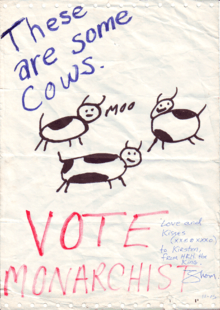 These
are some
Cows.
MOO
VOTE
MONARCHIST
Love and
Kisses
to Kirsten,
from HRH the
King